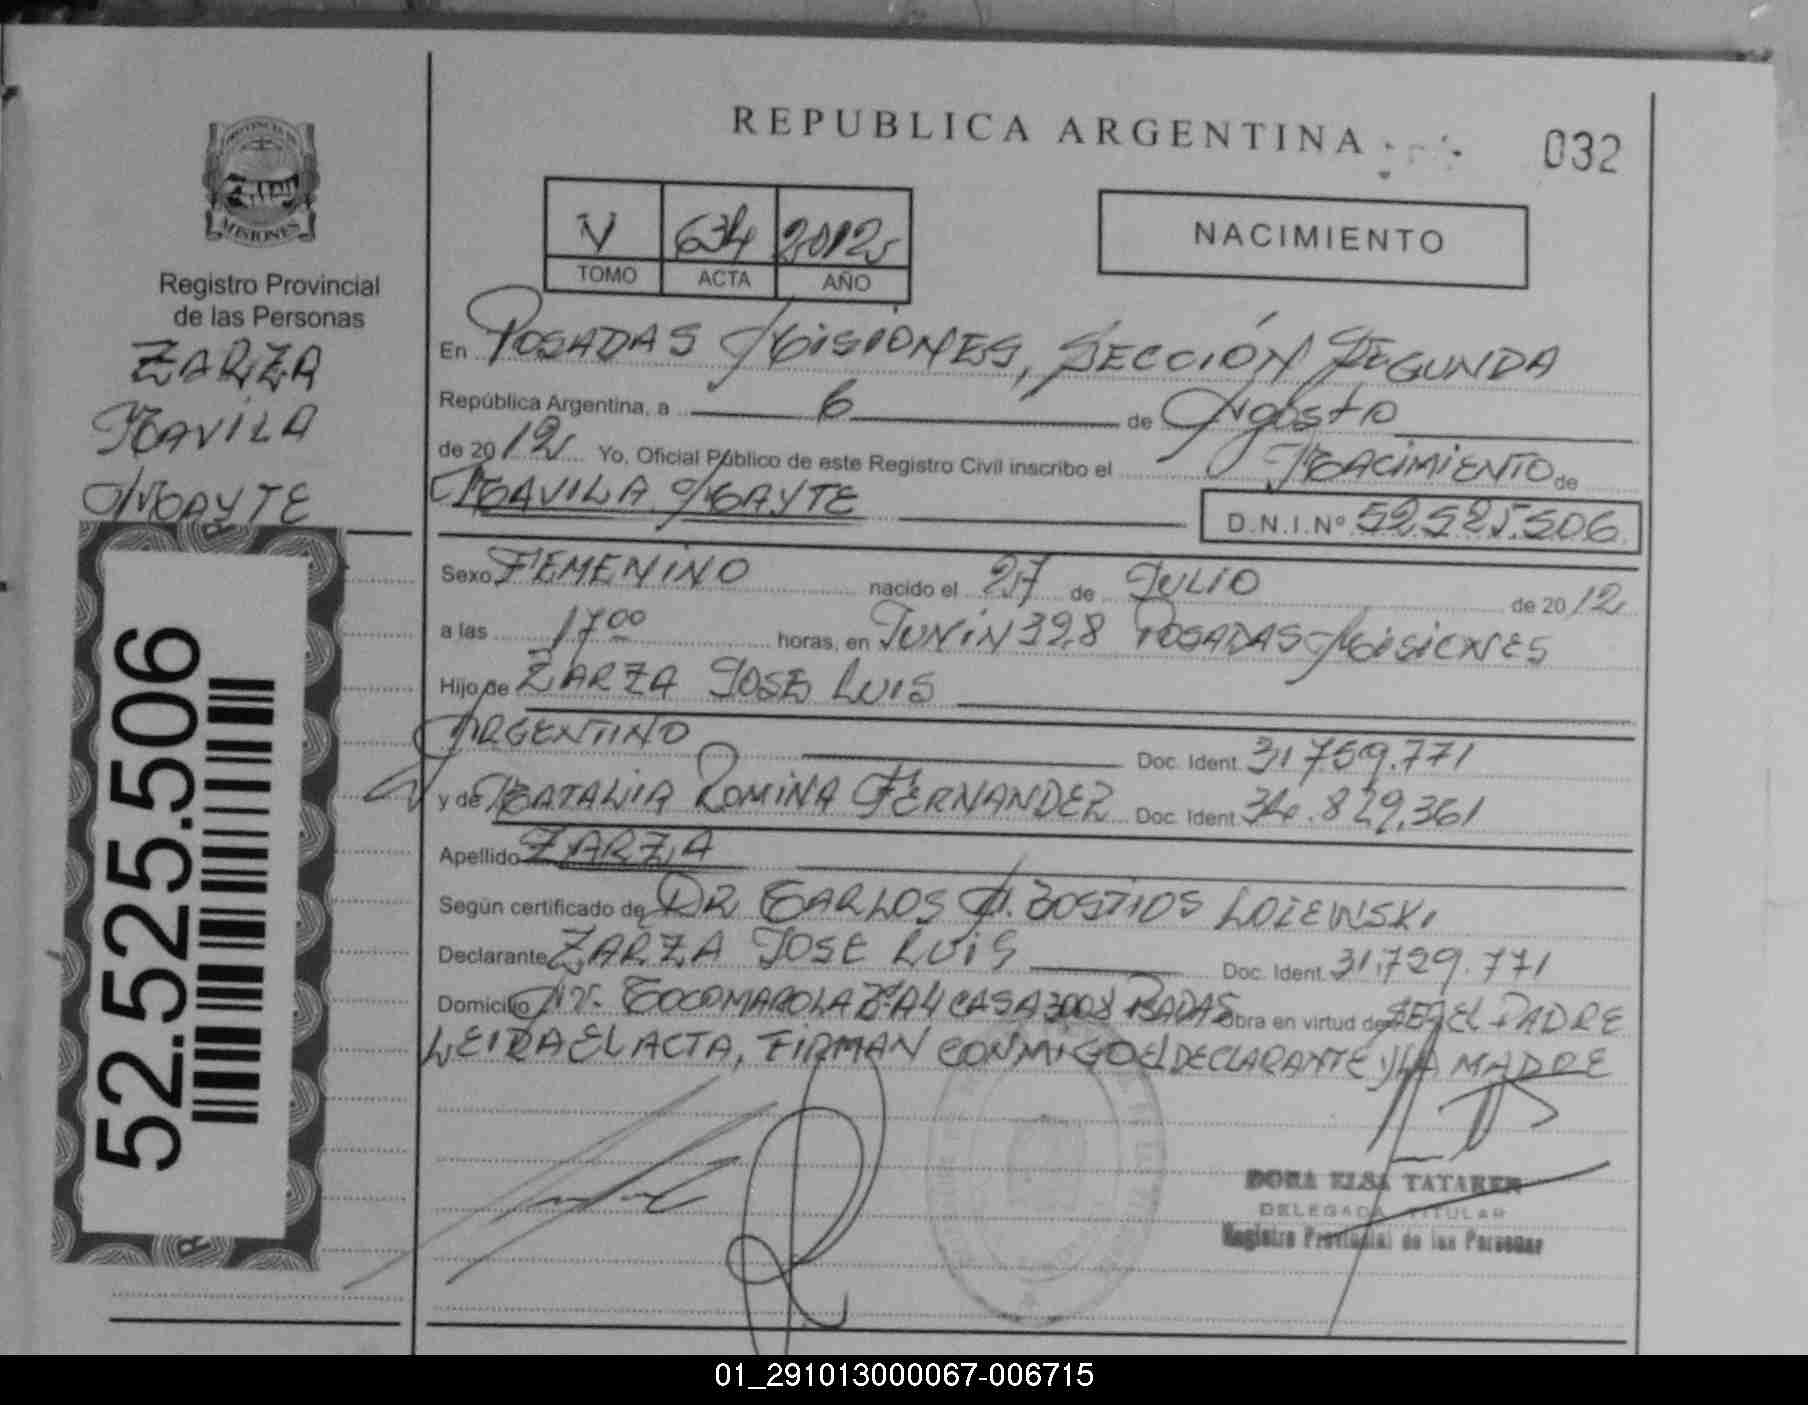 REPUBLICA ARGENTINA
032
PROVINCIA DE
MISIONES
Registro Provincial
de las Personas
ZARZA
NAVILA
MAYTE
52.525.506
V 634 2012
TOMO ACTA AÑO
NACIMIENTO
En POSADAS MISIONES, SECCIÓN SEGUNDA
República Argentina, a 6 de Agosto
de 2012 Yo, Oficial Público de este Registro Civil inscribo el NACIMIENTO de
NAVILA MAYTE D.N.I.Nº 52.525.506
Sexo FEMENINO nacido el 27 de JULIO de 2012
a las 17 00 horas, en JUNIN 328 POSADAS MISIONES
Hijo de ZARZA JOSE LUIS
ARGENTINO Doc. Ident. 31.759.771
y de NATALIA ROMINA FERNANDEZ Doc. Ident. 34.829.361
Apellido ZARZA
Según certificado de DR CARLOS A.
Declarante ZARZA JOSE LUIS Doc. Ident. 31.729.771
Domicilio AV. COCOMAROLA CASA 3008 obra en virtud de SER EL PADRE
LEIDA EL ACTA, FIRMAN CONMIGO EL DECLARANTE Y LA MADRE
DORA ELSA TATAREN
DELEGADA TITULAR
Registro Provincial de las Personas
01_291013000067-006715